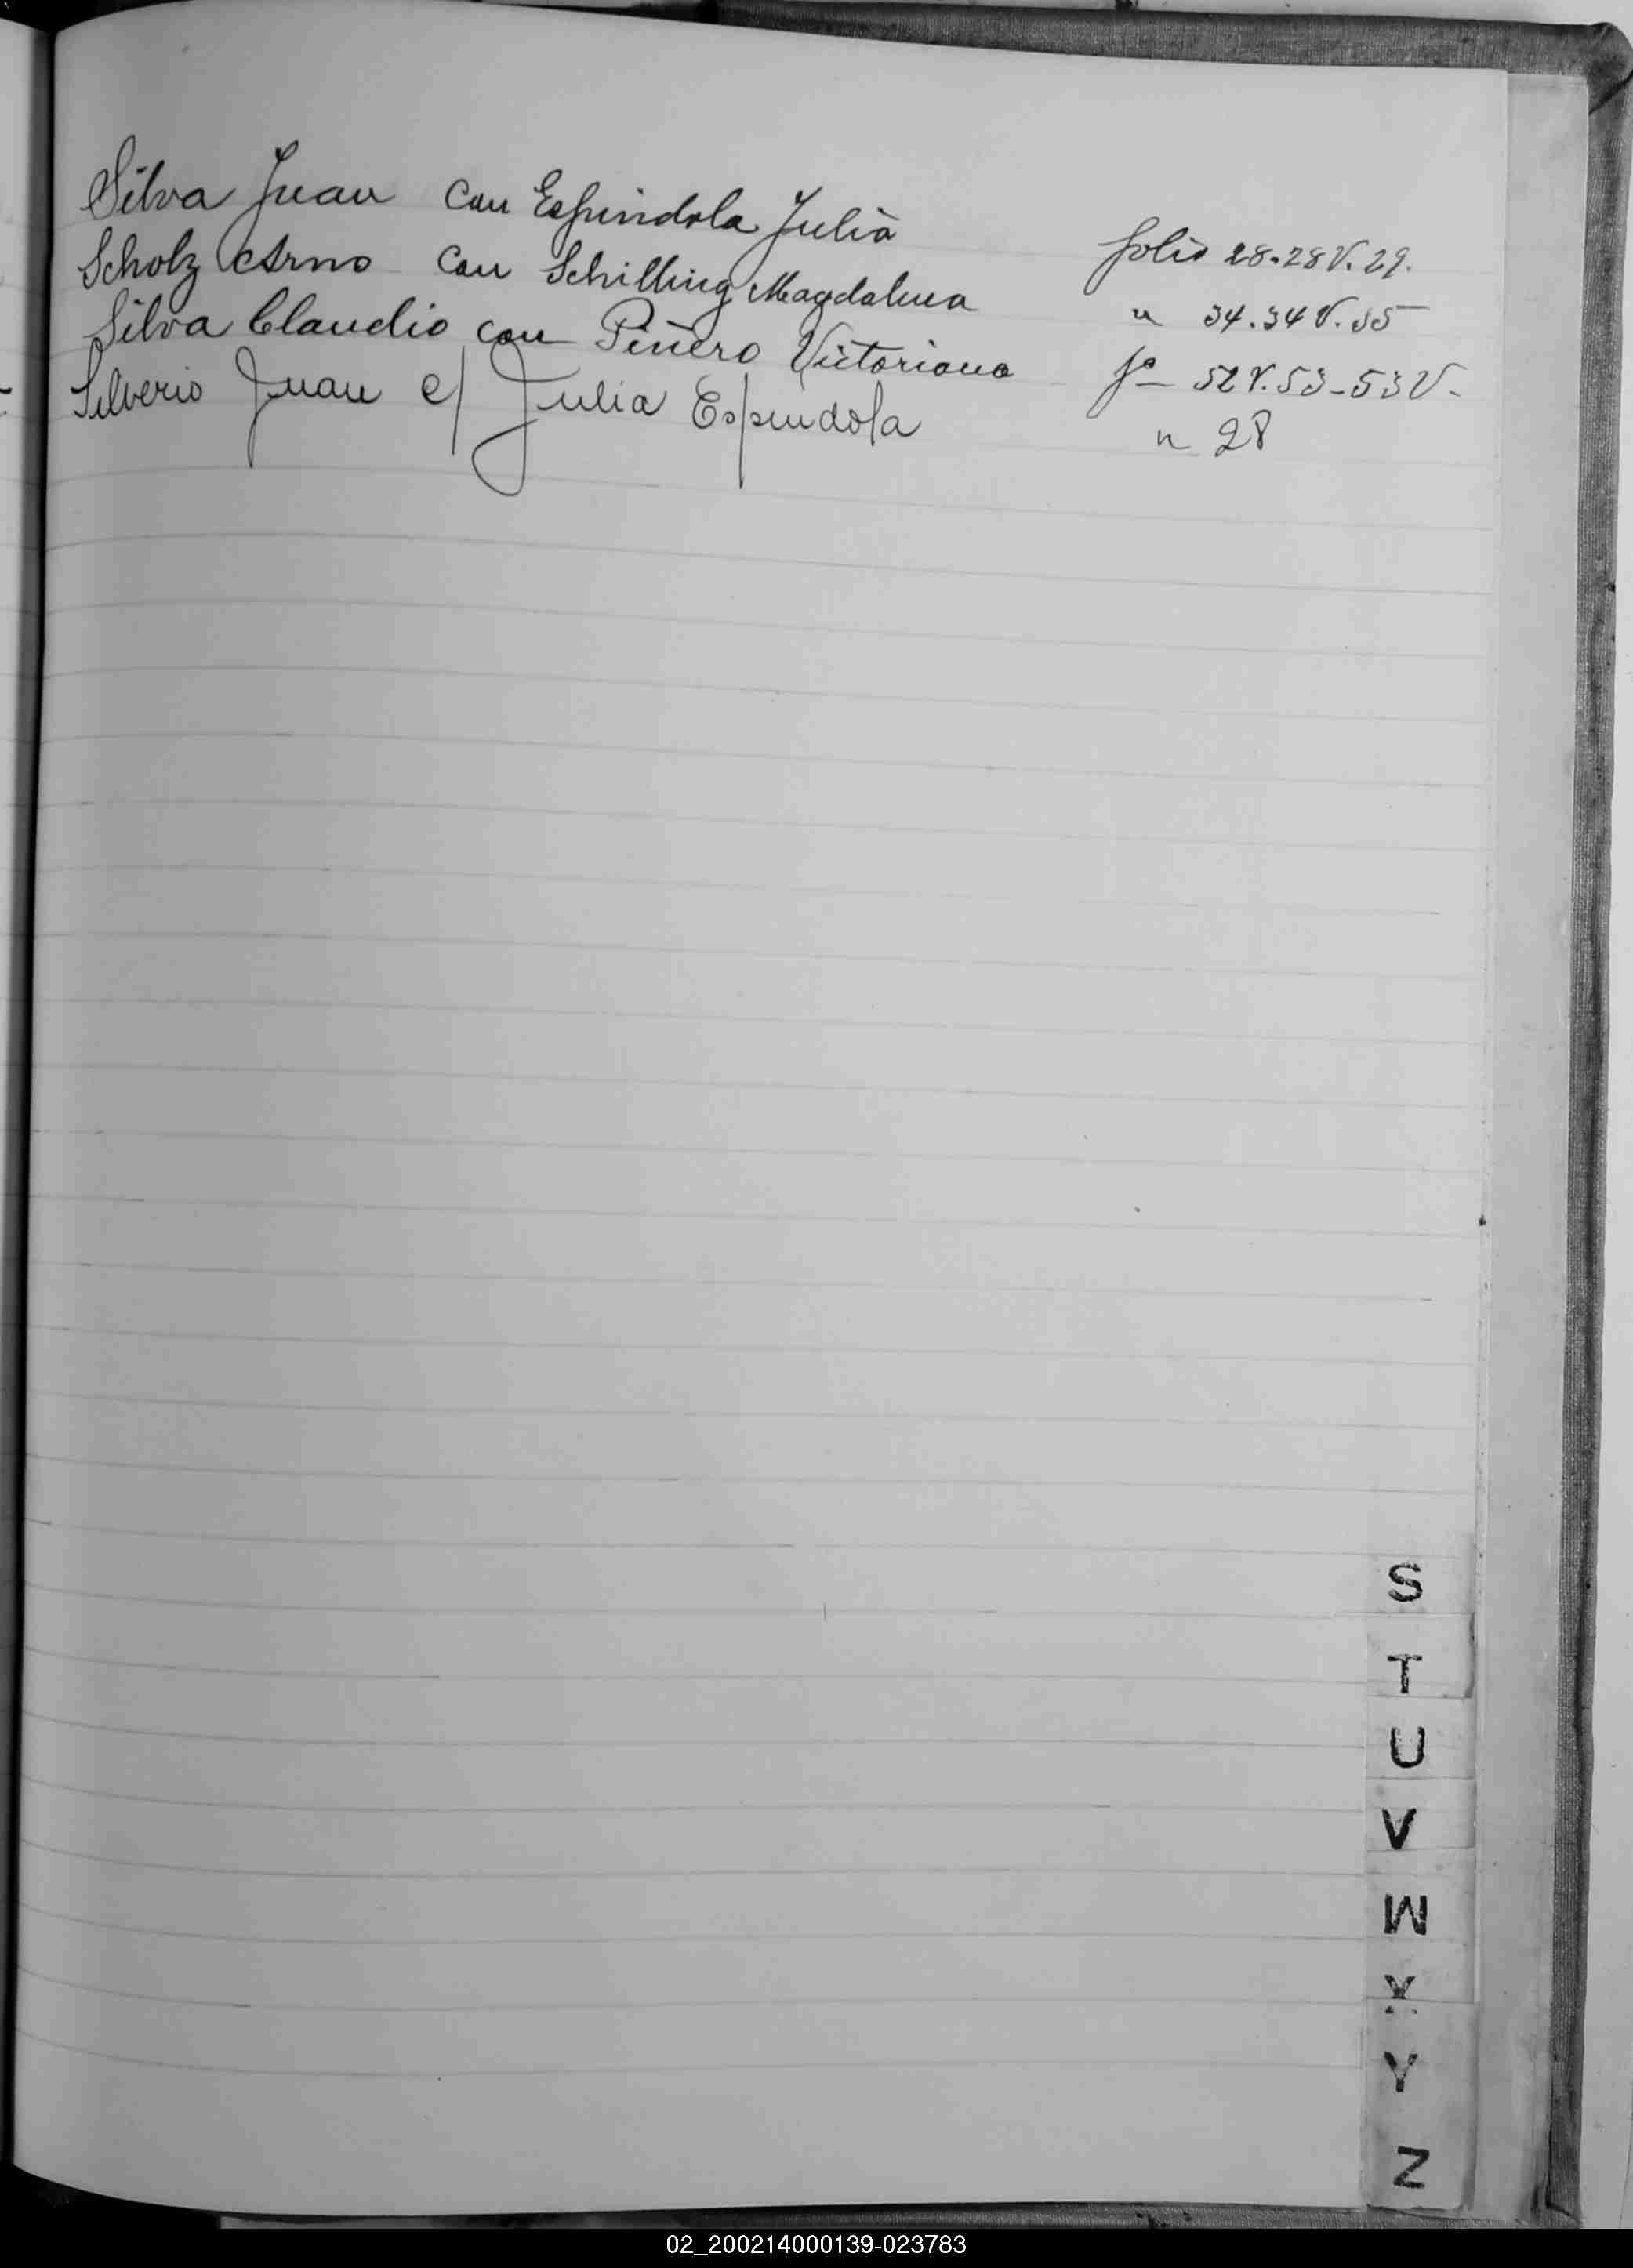 Silva Juan con Espindola Julia folio 28.28V.29.
Scholz Arno con Schilling Magdalena " 34.34V.35
Silva Claudio con Piñero Victoriana fº 52V.53-53V-
Silverio Juan c/ Julia Espindola " 28
S
T
U
V
W
X
Y
Z
02_200214000139-023783